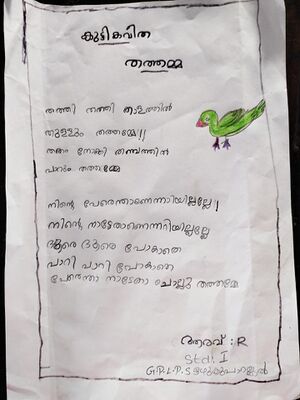 കുട്ടികവിത
തത്തമ്മ
തത്തി തത്തി താളത്തിൽ
തുള്ളും തത്തമ്മേ!!
തക്കം നോക്കി തഞ്ചത്തിൽ
പാറും തത്തമ്മേ
നിന്റെ പേരെന്താണെന്നറിയില്ലല്ലോ!
നിന്റെ നാടേതാണെന്നറിയില്ലല്ലോ
ദൂരെ ദൂരെ പോകാതെ
പാറി പാറി പോകാതെ
പേരെന്താ നാടേതാ ചൊല്ലൂ തത്തമ്മേ
ആരവ് : R
Std: I
G.P.L.P.S